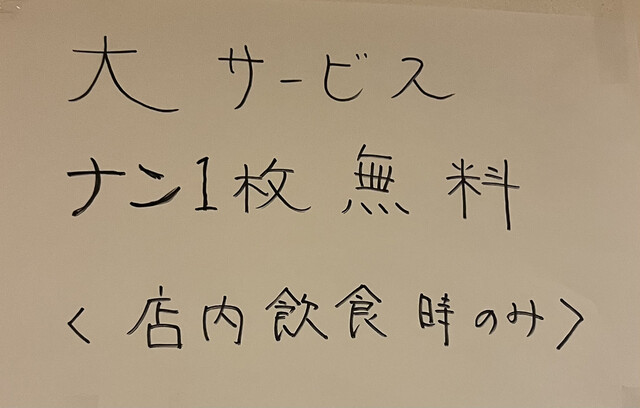 大 サービス
ナン1枚 無料
〈 店内飲食 時のみ 〉